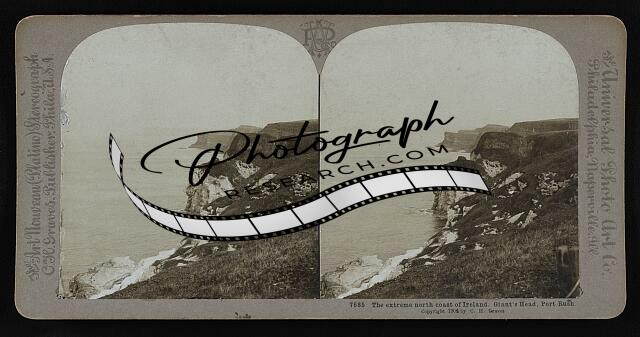 The Art Nouveau (Platino) Stereograph
C. H. Graves, Publisher, Phila., U.S.A.
Photograph
RESEARCH.COM
The Universal Photo Art Co.
Philadelphia, Naperville, Ill.
7685 The extreme north coast of Ireland. Giant's Head, Port Rush
Copyright 1904 by C. H. Graves